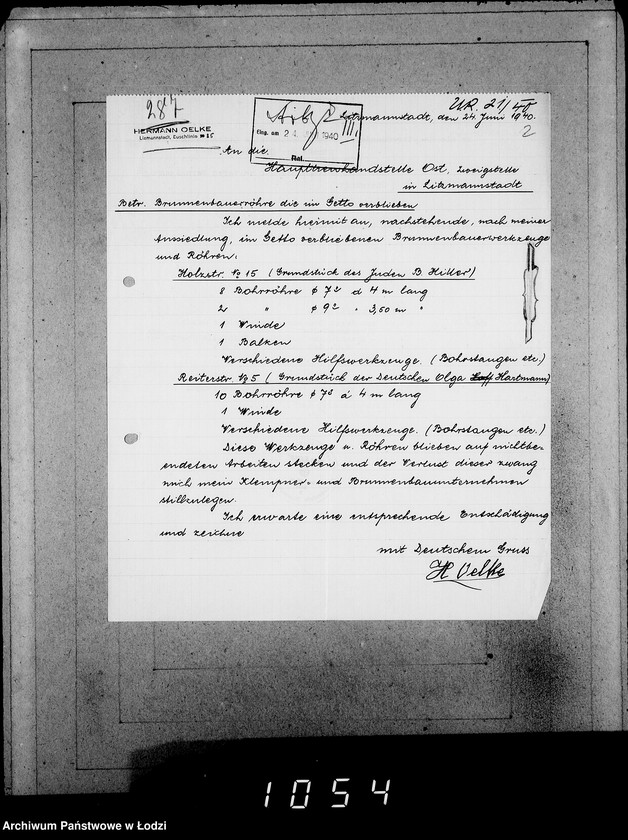 287
UR. 21/VI 40
HERMANN OELKE
Litzmannstadt, Buschlinie № 15
Eing. am 24. 1940 III.
Anl.
Litzmannstadt, den 24. Juni 1940.
2
An die
Haupttreuhandstelle Ost, Zweigstelle
in Litzmannstadt
Betr. Brunnenbauerröhre die im Getto verblieben
Ich melde hiermit an, nachstehende, nach meiner
Aussiedlung, im Getto verbliebenen Brunnenbauerwerkzeuge
und Röhren:
Holzstr. № 15 (Grundstück des Juden B. Hiller)
8 Bohrröhre ø 7" à 4 m lang
2 " ø 9" " 3,50 m "
1 Winde
1 Balken
Verschiedene Hilfswerkzeuge. (Bohrstangen etc.)
Reiterstr. № 5 (Grundstück der Deutschen Olga Hartmann)
10 Bohrröhre ø 7" à 4 m lang
1 Winde
Verschiedene Hilfswerkzeuge. (Bohrstangen etc.)
Diese Werkzeuge u. Röhren blieben auf nichtbe-
endeten Arbeiten stecken und der Verlust dieser zwang
mich mein Klempner- und Brunnenbauunternehmen
stillzulegen.
Ich erwarte eine entsprechende Entschädigung
und zeichne
mit Deutschem Gruss
H Oelke
1054
Archiwum Państwowe w Łodzi